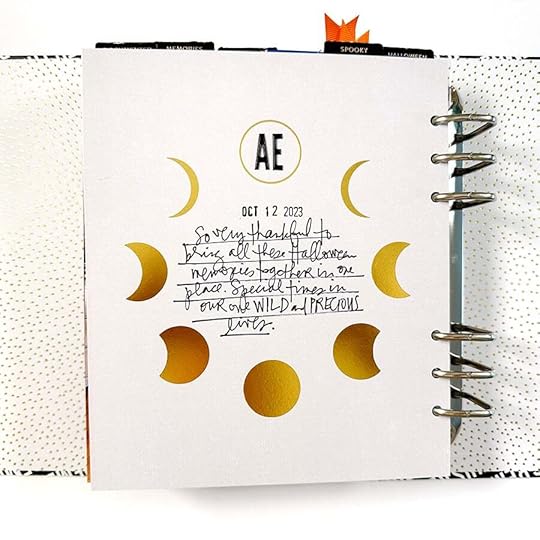 MEMORIES
SPOOKY
HALLOWEEN
AE
OCT 12 2023
So very thankful to
bring all these Halloween
memories together in one
place. Special times in
our one WILD and PRECIOUS
lives.